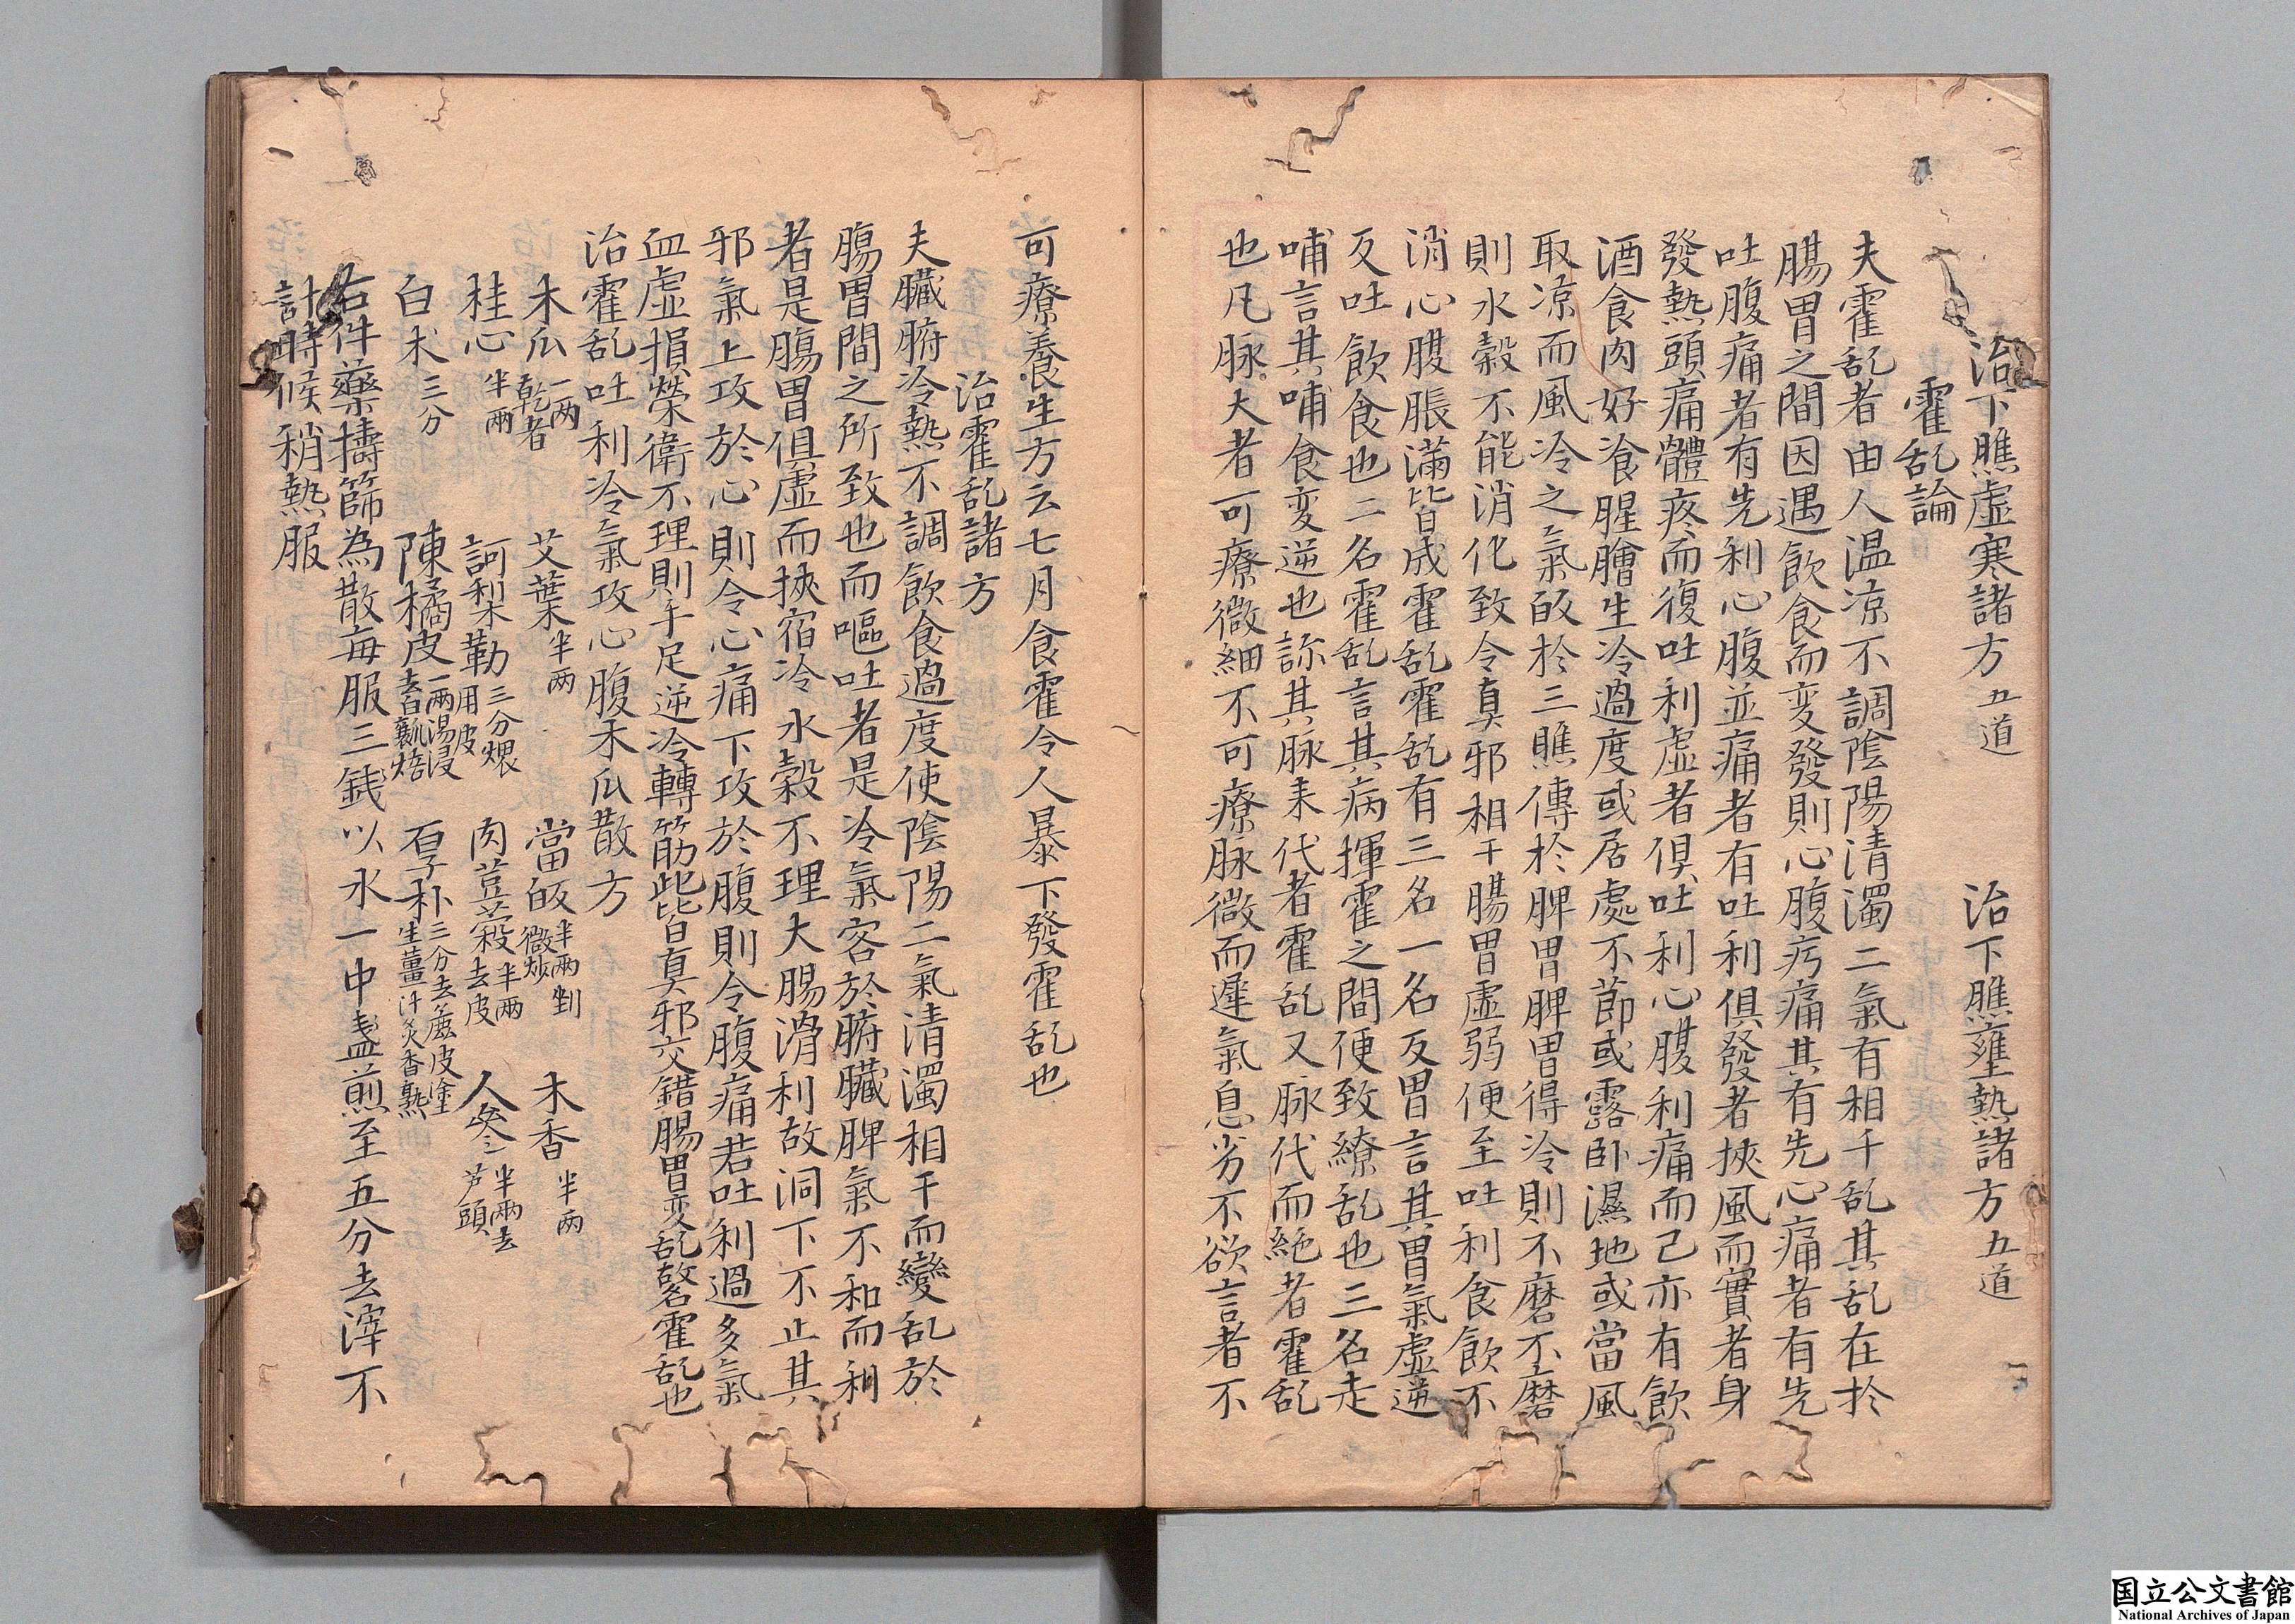 治下膲虛寒諸方五道 治下膲壅熱諸方五道
霍乱論
夫霍乱者由人温凉不調陰陽清濁二氣有相干乱其乱在於
腸胃之間因遇飲食而変發則心腹㽲痛其有先心痛者有先
吐腹痛者有先利心腹並痛者有吐利俱發者挾風而實者身
發熱頭痛體疼而復吐利虛者俱吐利心腹利痛而已亦有飲
酒食肉好飡腥膾生冷過度或居處不莭或露卧濕地或當風
取凉而風冷之氣皈於三膲傳於脾胃脾胃得冷則不磨不磨
則水穀不能消化致令真邪相干腸胃虛弱便至吐利食飲不
消心腹脹滿皆成霍乱霍乱有三名一名反胃言其胃氣虛逆
反吐飲食也二名霍乱言其病揮霍之間便致繚乱也三名走
哺言其哺食変逆也診其脉来代者霍乱又脉代而絶者霍乱
也凡脉大者可療微細不可療脉微而遲氣息劣不欲言者不
可療養生方云七月食霍令人暴下發霍乱也
治霍乱諸方
夫臟腑冷熱不調飲食過度使陰陽二氣清濁相干而變乱於
腸胃間之所致也而嘔吐者是冷氣客於腑臟脾氣不和而利
者是腸胃俱虛而挾宿冷水穀不理大腸滑利故洞下不止其
邪氣上攻於心則令心痛下攻於腹則令腹痛若吐利過多氣
血虛損榮衛不理則手足逆冷轉筋此皆真邪交錯腸胃変乱故名霍乱也
治霍乱吐利冷氣攻心腹木瓜散方
木瓜一両乾者 艾葉半両 當皈半両剉微炒 木香半両
桂心半両 訶梨勒三分煨用皮 肉荳蔲半両去皮 人參半両去芦頭
白术三分 陳橘皮一両湯浸去白瓤焙 厚朴三分去麁皮塗生薑汁炙香熟
右件藥擣篩為散每服三銭以水一中盞煎至五分去滓不
計時候稍熱服
国立公文書館
National Archives of Japan